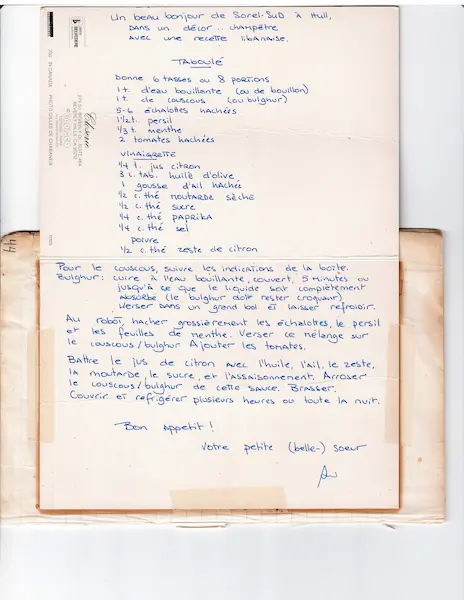 Un beau bonjour de Sorel-Sud à Hull,
dans un décor... champêtre
avec une recette libanaise.
Taboulé
Donne 6 tasses ou 8 portions
1 t. d'eau bouillante (ou de bouillon)
1 t. de couscous (ou bulghur)
5-6 échalottes hachées
1 1/2 t. persil
1/3 t. menthe
2 tomates hachées
Vinaigrette
1/4 t. jus citron
3 c. tab. huile d'olive
1 gousse d'ail hachée
1/2 c. thé moutarde sèche
1/2 c. thé sucre
1/4 c. thé paprika
1/4 c. thé sel
poivre
1/2 c. thé zeste de citron
Pour le couscous, suivre les indications de la boîte.
Bulghur: cuire à l'eau bouillante, couvert, 5 minutes ou
jusqu'à ce que le liquide soit complètement
absorbé (le bulghur doit rester croquant)
Verser dans un grand bol et laisser refroidir.
Au robot, hacher grossièrement les échalottes, le persil
et les feuilles de menthe. Verser ce mélange sur
le couscous/bulghur Ajouter les tomates.
Battre le jus de citron avec l'huile, l'ail, le zeste,
la moutarde, le sucre, et l'assaisonnement. Arroser
le couscous/bulghur de cette sauce. Brasser.
Couvrir et réfrigérer plusieurs heures ou toute la nuit.
Bon appétit!
Votre petite (belle-) soeur
44